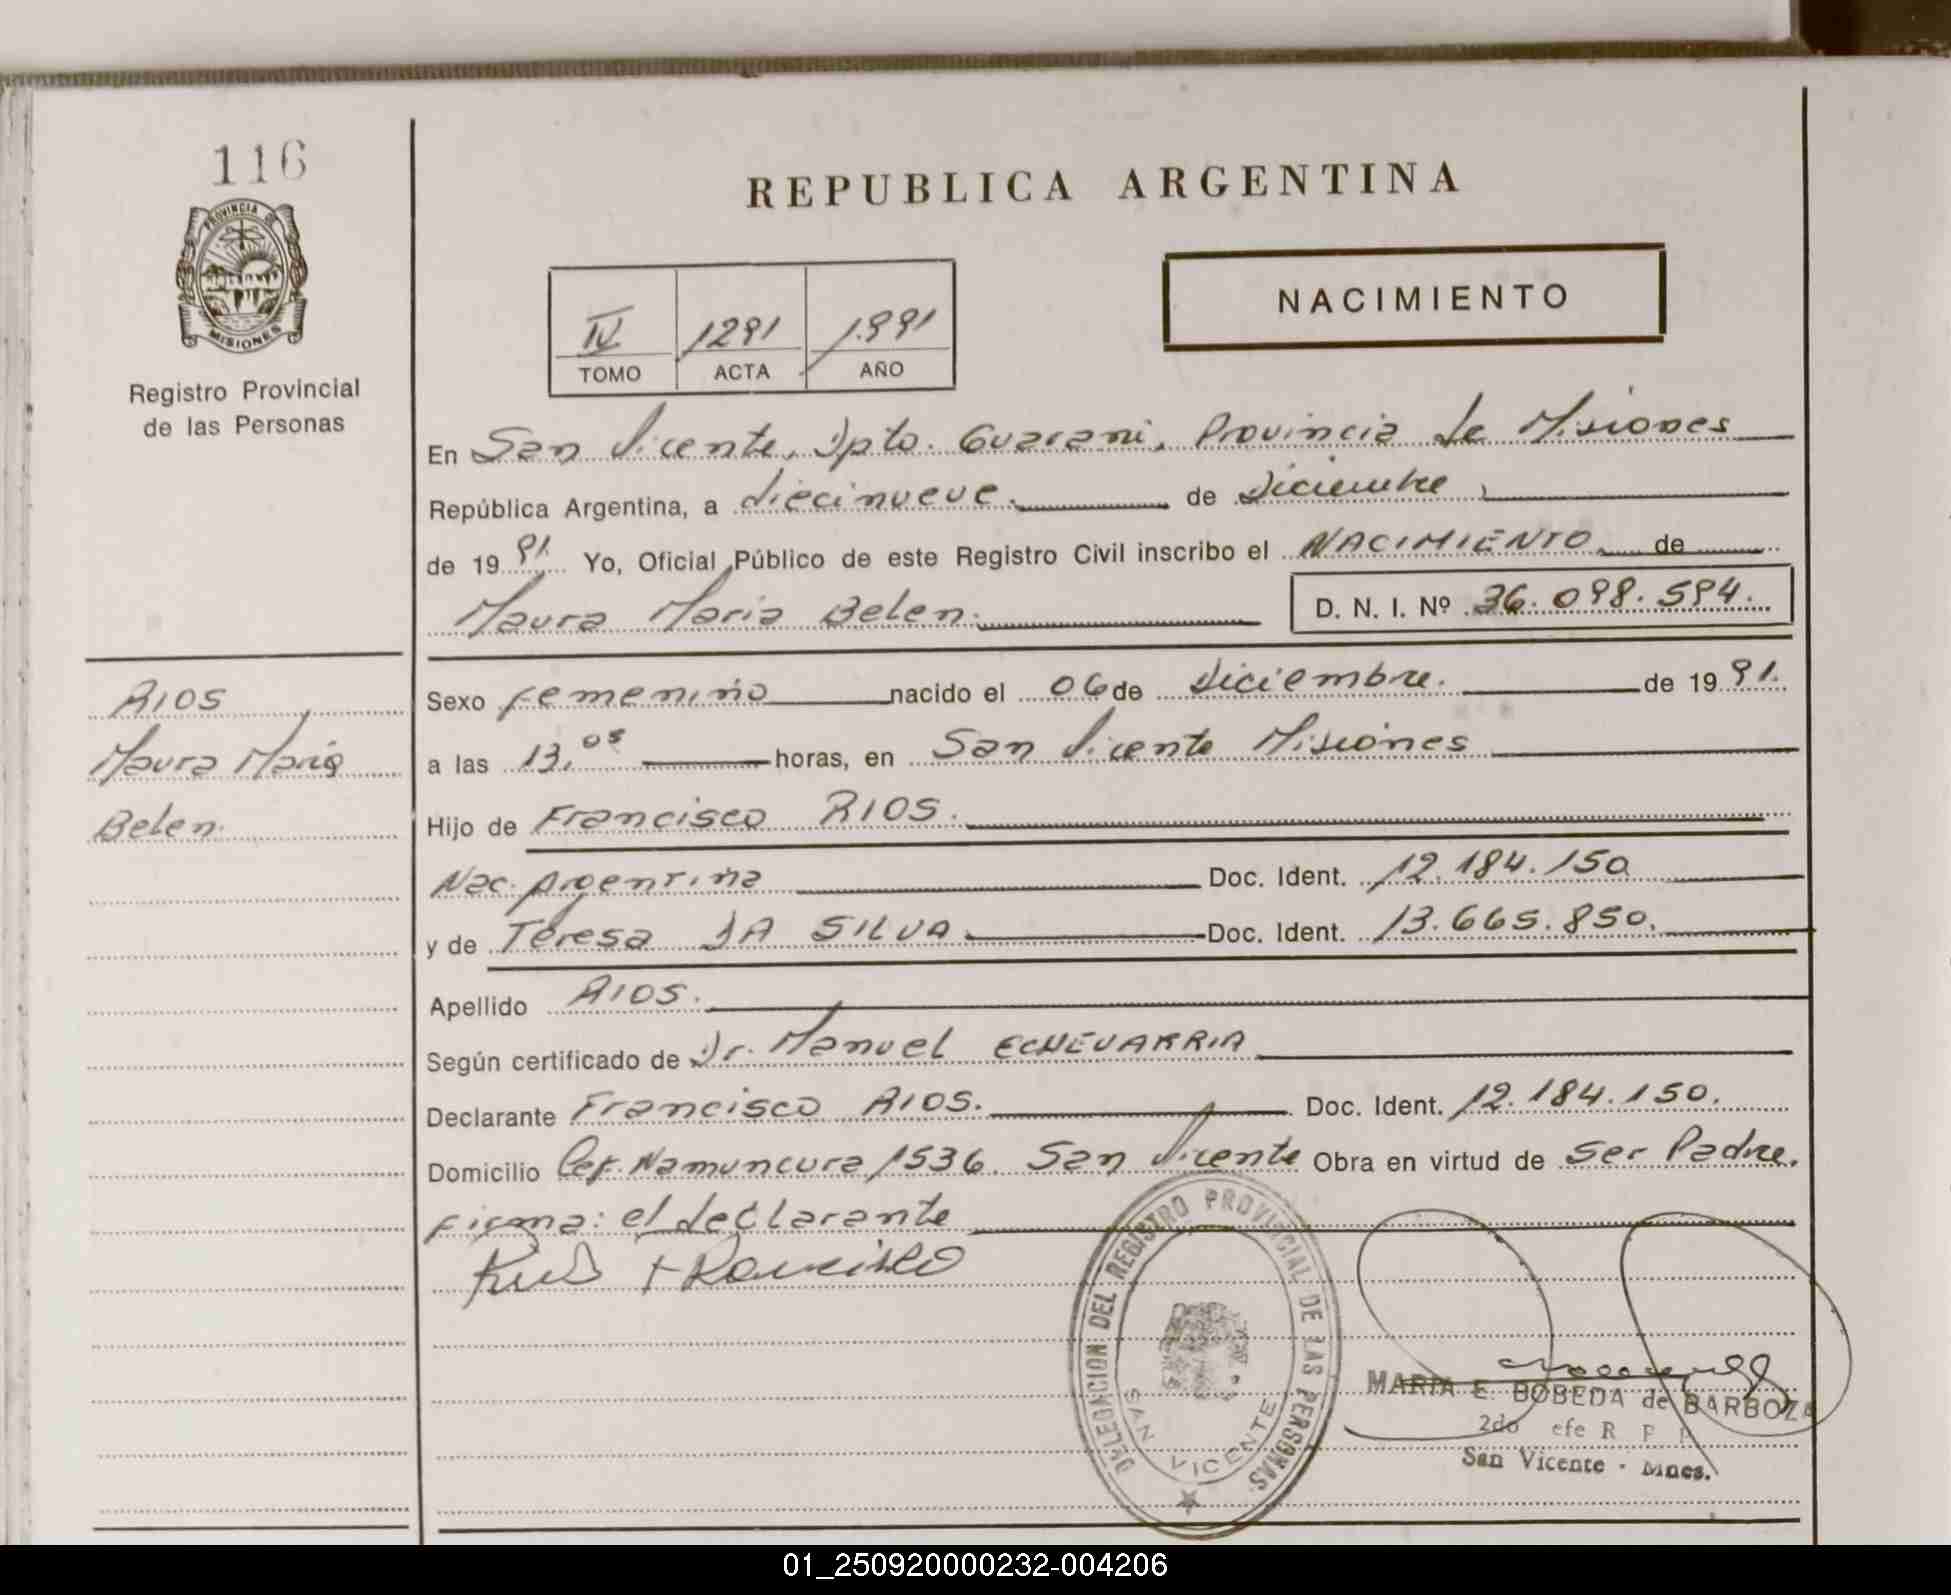 116
REPUBLICA ARGENTINA
PROVINCIA DE
MISIONES
NACIMIENTO
IV 1291 1.991
TOMO ACTA AÑO
Registro Provincial
de las Personas
En San Vicente, Dpto. Guarani, Provincia de Misiones
República Argentina, a diecinueve. de Diciembre
de 19 91. Yo, Oficial Público de este Registro Civil inscribo el NACIMIENTO de
Maura Maria Belen. D. N. I. Nº 36.098.594.
RIOS
Maura Maria
Belen.
Sexo femenino nacido el 06 de Diciembre. de 19 91.
a las 13,05 horas, en San Vicente Misiones
Hijo de Francisco RIOS.
Nac. Argentina Doc. Ident. 12.184.150
y de Teresa DA SILVA Doc. Ident. 13.665.850.
Apellido RIOS.
Según certificado de Dr. Manuel ECHEVARRIA
Declarante Francisco RIOS. Doc. Ident. 12.184.150.
Domicilio Cef. Namuncura 1536. San Vicente Obra en virtud de ser Padre.
Firma: el declarante
DELEGACION DEL REGISTRO PROVINCIAL DE LAS PERSONAS
SAN VICENTE
MARIA E. BOBEDA de BARBOZA
2do efe R P P
San Vicente - Mnes.
01_250920000232-004206